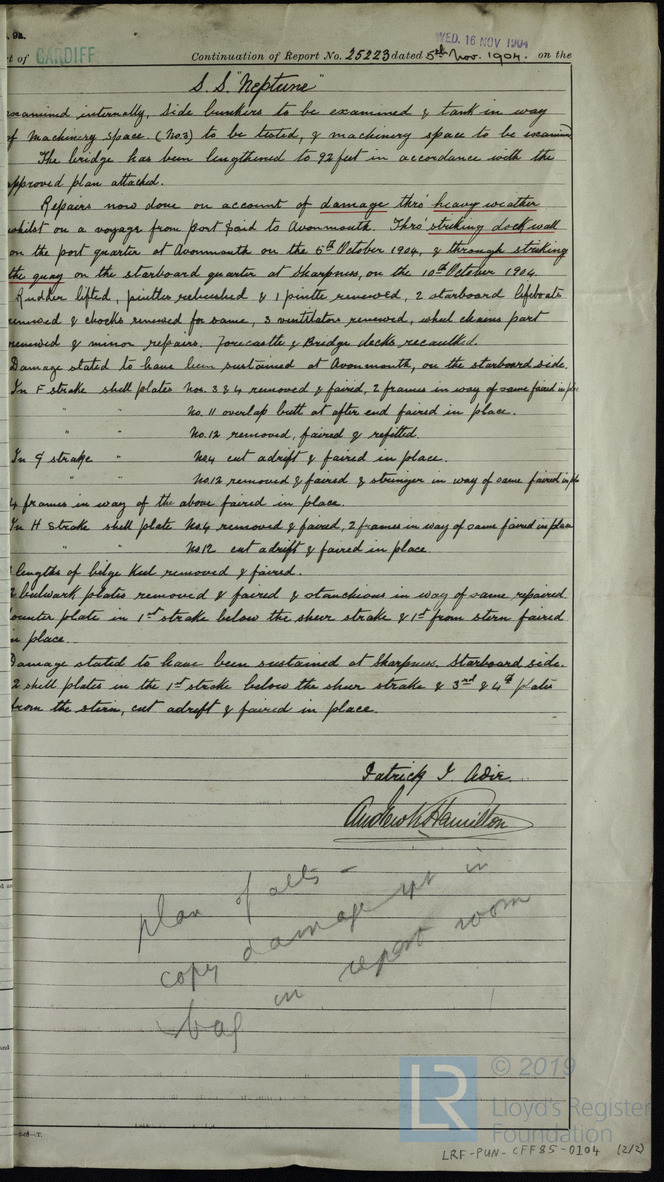 . 9a.
WED. 16 NOV 1904
t of CARDIFF Continuation of Report No. 25223 dated 5th Nov. 1904. on the
S.S. "Neptune"
examined internally, Side bunkers to be examined & tank in way
of Machinery space. (No.3) to be tested, & machinery space to be examined
The bridge has been lengthened to 92 feet in accordance with the
approved plan attached.
Repairs now done on account of damage thro' heavy weather
whilst on a voyage from port Said to Avonmouth. Thro' striking dock wall
on the port quarter at Avonmouth on the 6th October 1904, & through striking
the quay on the starboard quarter at Sharpness, on the 10th October 1904.
Rudder lifted, pintles rebushed & 1 pintle renewed, 2 starboard lifeboats
removed & chocks renewed for same, 3 ventilators renewed, wheel chains part
renewed & minor repairs. Forecastle & Bridge decks recaulked.
Damage stated to have been sustained at Avonmouth, on the starboard side.
In F strake shell plates Nos. 3 & 4 removed & faired, 2 frames in way of same faired in place
" " No. 11 overlap butt at after end faired in place.
" " No. 12 removed, faired & refitted.
In G strake " No 4 cut adrift & faired in place.
" " No. 12 removed & faired & stringer in way of same faired in place
4 frames in way of the above faired in place.
In H strake shell plate No 4 removed & faired, 2 frames in way of same faired in place
" " No 12 cut adrift & faired in place.
lengths of bilge keel removed & faired.
2 bulwark plates removed & faired & stanchions in way of same repaired.
counter plate in 1st strake below the sheer strake & 1st from stern faired
in place.
Damage stated to have been sustained at Sharpness. Starboard side.
2 shell plates in the 1st strake below the sheer strake & 3rd & 4th plates
from the stern, cut adrift & faired in place.
Patrick J. Adie.
Andrew K Hamilton
plan of alts -
copy damage rpt in
bag in report room
© 2019
LR Lloyd's Register
Foundation
LRF-PUN-CFF85-0104 (2/2)